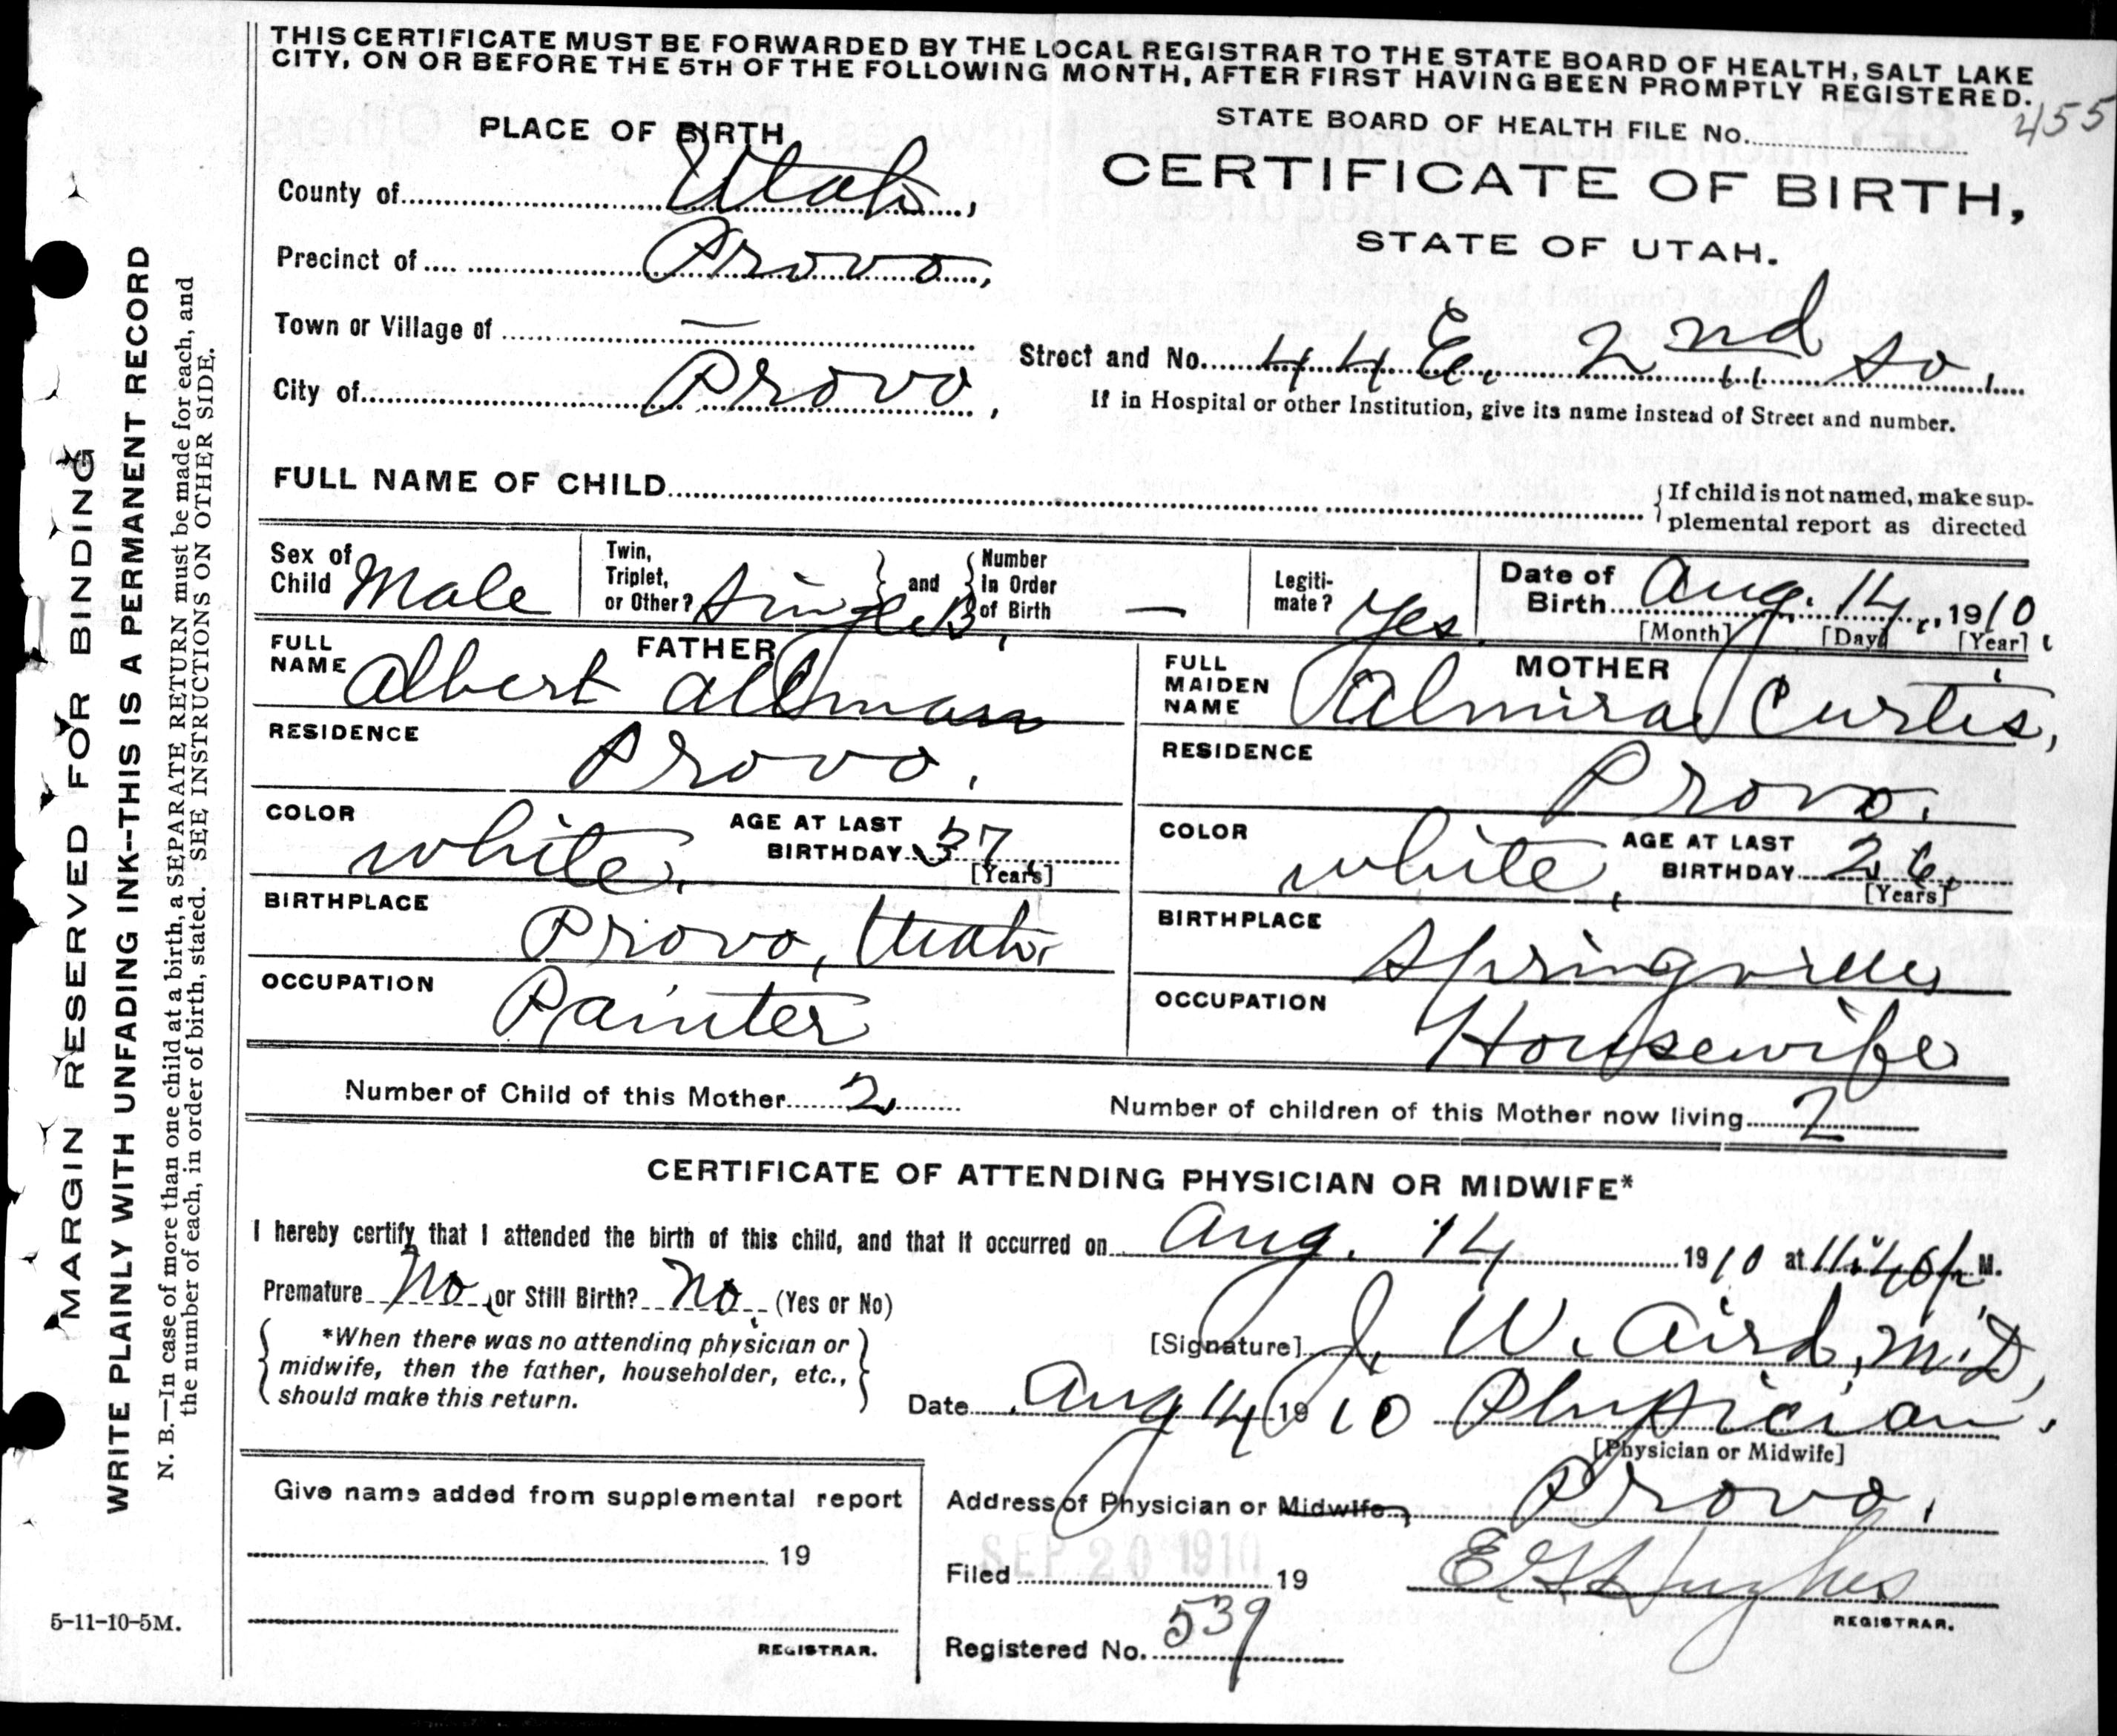 THIS CERTIFICATE MUST BE FORWARDED BY THE LOCAL REGISTRAR TO THE STATE BOARD OF HEALTH, SALT LAKE
CITY, ON OR BEFORE THE 5TH OF THE FOLLOWING MONTH, AFTER FIRST HAVING BEEN PROMPTLY REGISTERED.
STATE BOARD OF HEALTH FILE No. 455
PLACE OF BIRTH
CERTIFICATE OF BIRTH,
STATE OF UTAH.
County of Utah,
Precinct of Provo,
Town or Village of —
Street and No. 44 E. 2nd So.
City of Provo,
If in Hospital or other Institution, give its name instead of Street and number.
FULL NAME OF CHILD
If child is not named, make sup-
plemental report as directed
Sex of Child Male
Twin, Triplet, or Other? Single
and Number In Order of Birth —
Legiti-mate? Yes
Date of Birth Aug. 14, 1910.
[Month] [Day] [Year]
FATHER
FULL NAME Albert B. Allman
MOTHER
FULL MAIDEN NAME Almira Curtis,
RESIDENCE Provo.
RESIDENCE Provo.
COLOR white.
AGE AT LAST BIRTHDAY 37
[Years]
COLOR white,
AGE AT LAST BIRTHDAY 26
[Years]
BIRTHPLACE Provo, Utah.
BIRTHPLACE Springville
OCCUPATION Painter
OCCUPATION Housewife
Number of Child of this Mother 2
Number of children of this Mother now living 2
CERTIFICATE OF ATTENDING PHYSICIAN OR MIDWIFE*
I hereby certify that I attended the birth of this child, and that it occurred on Aug. 14 1910 at 11:40 p M.
Premature No or Still Birth? No (Yes or No)
*When there was no attending physician or
midwife, then the father, householder, etc.,
should make this return.
[Signature] J. W. Aird, M.D,
Date Aug 14 1910 Physician.
[Physician or Midwife]
Give name added from supplemental report
19
REGISTRAR.
Address of Physician or Midwife, Provo.
SEP 20 1910
Filed 19
E G Hughes
REGISTRAR.
Registered No. 539
MARGIN RESERVED FOR BINDING
WRITE PLAINLY WITH UNFADING INK--THIS IS A PERMANENT RECORD
N. B.—In case of more than one child at a birth, a SEPARATE RETURN must be made for each, and
the number of each, in order of birth, stated. SEE INSTRUCTIONS ON OTHER SIDE.
5-11-10-5M.